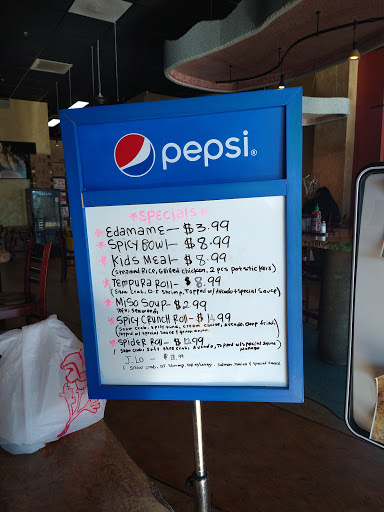 pepsi
*SPECIALS*
*EDAMAME— $3.99
*SPICY BOWL— $8.99
*KIDS MEAL— $8.99
(Steamed Rice, Grilled Chicken, 2 pcs potstickers)
*TEMPURA ROLL— $8.99
(Snow Crab, D.F Shrimp, Topped w/Avocado & Special Sauce)
*MISO SOUP— $2.99
Seaweed)
*SPICY CRUNCH ROLL— $
(Snow Crab, Spicy tuna, Cream Cheese, Avocado, Deep fried,
Topped w/ special sauce & green onion)
*SPIDER ROLL— $
(Snow Crab, Soft Shell Crab, Avocado, Topped w/ special Sauce
J.Lo —
(Snow Crab, D.F Shrimp, Topped w/ Salmon, & Special Sauce